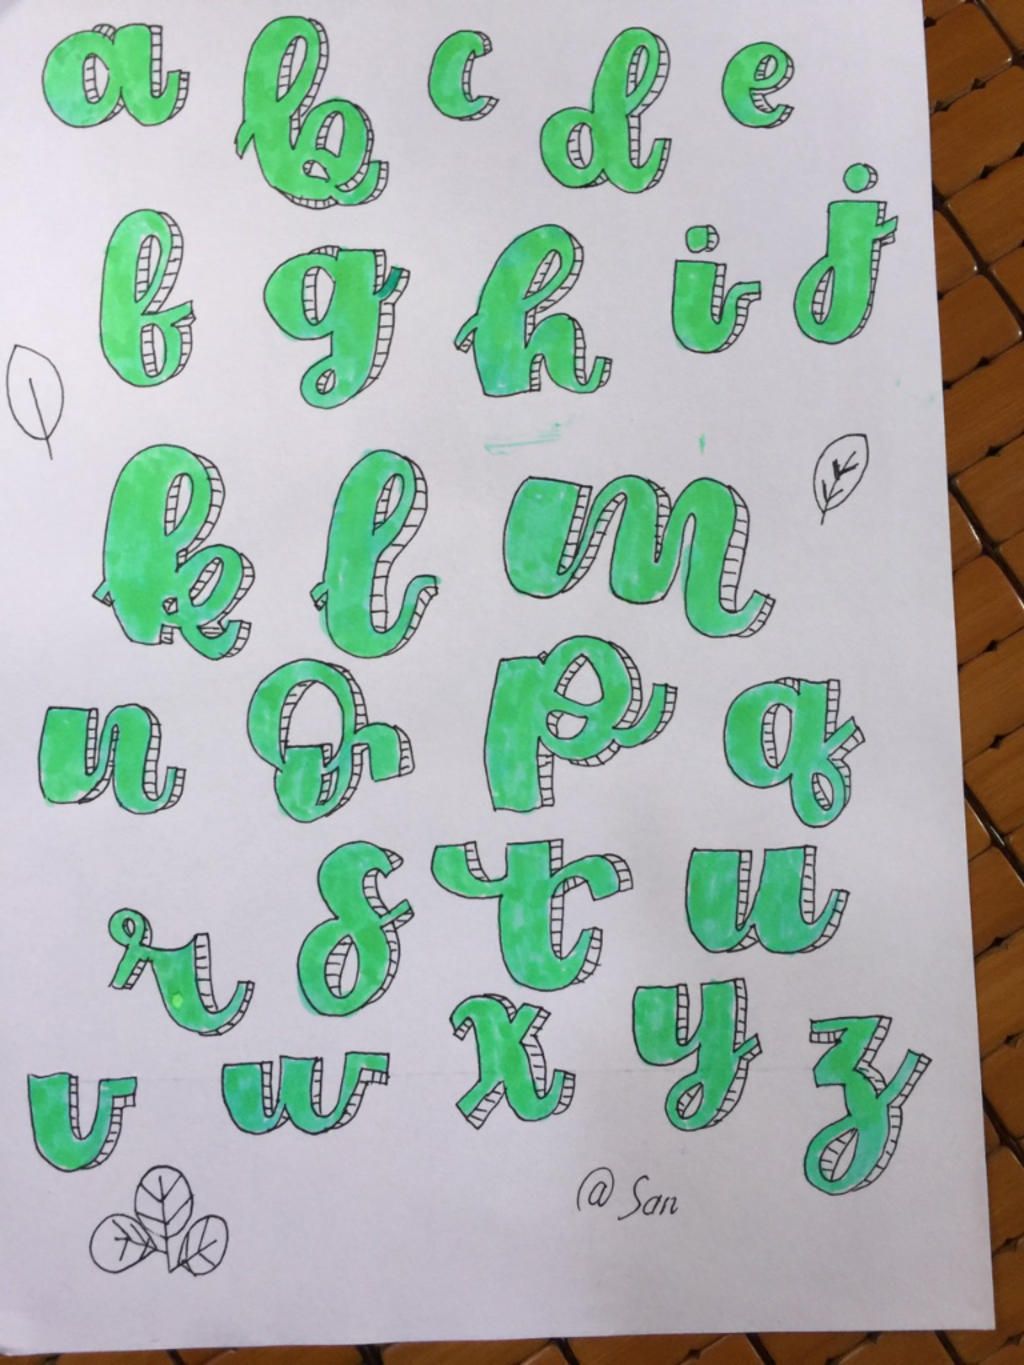 a b c d e
f g h i j
k l m
n o p q
r s t u
v w x y z
@ San